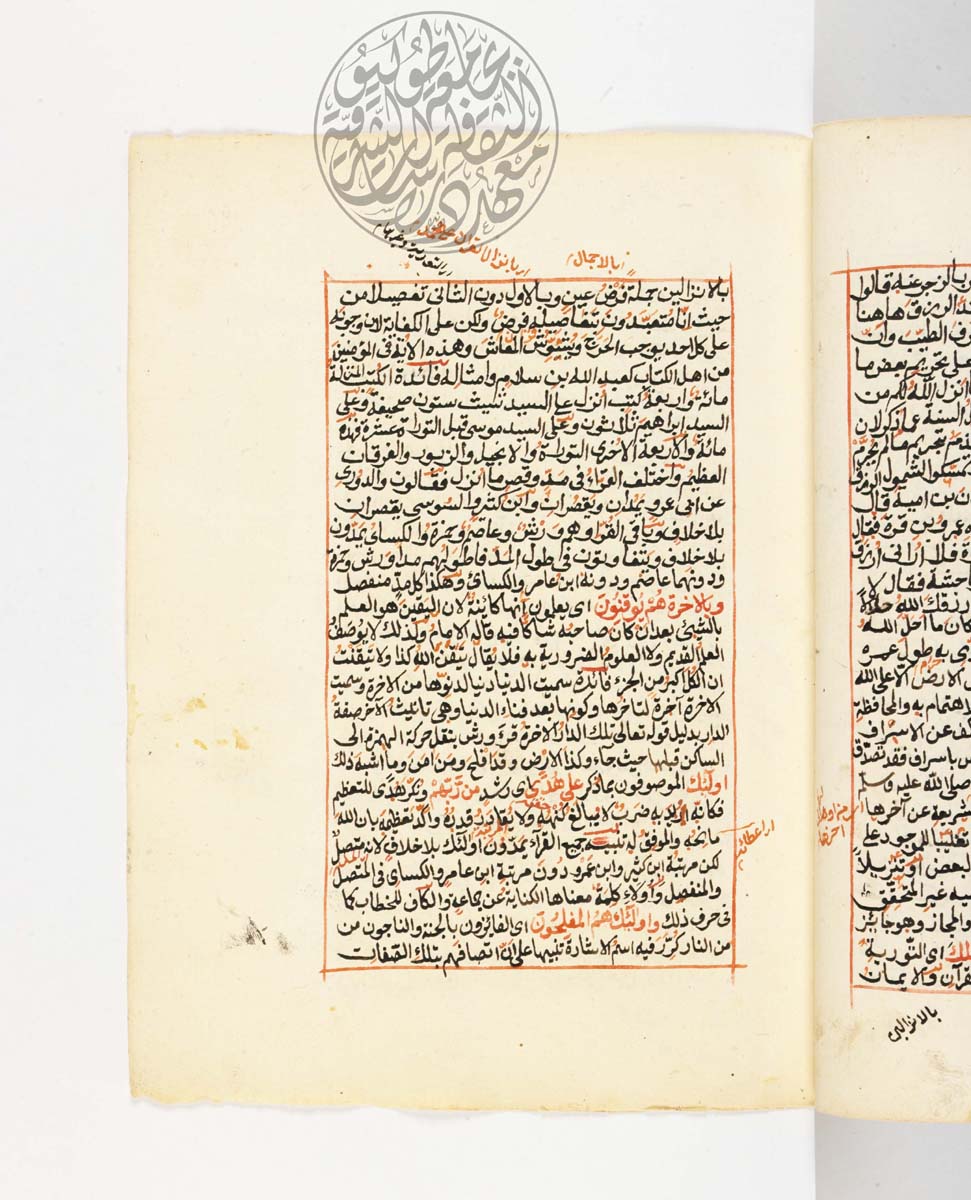 معهد دراسات الثقافة الشرقية بجامعة طوكيو
بالاجمال
بالانزالين جملة فرض عين وبالاول دون الثاني تفصيلا من
حيث انا متعبدون بتفاصيله فرض ولكن على الكفاية لان وجوبه
على كل احد يوجب الحرج ويشوش المعاش وهذه الاية في المؤمنين
من اهل الكتاب كعبد الله بن سلام وامثاله فائدة الكتب المنزلة
مائة واربعة كتب انزل على السيد شيث ستون صحيفة وعلى
السيد ابراهيم ثلاثون وعلى السيد موسى قبل التوراة عشرة فهذه
مائة والاربعة الاخرى التوراة والانجيل والزبور والفرقان
العظيم واختلف القراء في مد وقصر ما انزل فقالون والدوري
عن ابي عمرو يمدان ويقصران وابن كثير والسوسي يقصران
بلا خلاف وباقي القراء وهم ورش وعاصم وحمزة والكسائي يمدون
بلا خلاف ويتفاوتون في طول المد فاطولهم مدا ورش وحمزة
ودونهما عاصم ودونه ابن عامر والكسائي وهكذا كل مد منفصل
وبالاخرة هم يوقنون اي يعلمون انها كائنة لان اليقين هو العلم
بالشيئ بعد ان كان صاحبه شاكا فيه قاله الامام ولذلك لا يوصف
العلم القديم ولا العلوم الضرورية به فلا يقال تيقن الله كذا ولا تيقنت
ان الكل اكبر من الجزء فائدة سميت الدنيا دنيا لدنوها من الاخرة وسميت
الاخرة آخرة لتاخرها وكونها بعد فناء الدنيا وهي تانيث الآخر صفة
الدار بدليل قوله تعالى تلك الدار الاخرة قرء ورش بنقل حركة الهمزة الى
الساكن قبلها حيث جاء وكذا الارض وقد افلح ومن امن وما اشبه ذلك
اولئك الموصوفون بما ذكر على هدى اي رشد من ربهم ونكر هدى للتعظيم
فكانه اريد به ضرب لا يبالغ كنهه ولا يقادر قدره واكد تعظيمه بان الله
مانحه والموفق له تنبيه جميع القرآء يمدون اولئك بلا خلاف لانه متصل
لكن مرتبة ابن كثير وابن عمرو دون مرتبة ابن عامر والكسائي في المتصل
والمنفصل واولاء كلمة معناها الكناية عن جماعة والكاف للخطاب كما
في حرف ذلك واولئك هم المفلحون اي الفائزون بالجنة والناجون من
من النار كرر فيه اسم الاشارة تنبيها على ان اتصافهم بتلك الصفات
قالوا
هاهنا
الطيب وان
على تحريم بعض ما
انزل الله لكم من
بن امية قال
عمرو بن قرة فقال
فقال لا
رزقك الله حلالا
كان ما احل الله
به طول عمره
الارض الا على الله
الاهتمام به والمحافظة
عن الاسراف
باسراف فقد تصدق
صلى الله عليه وسلم
الشريعة عن آخرها
تغليبا للموجود على
البعض او تنزيلا
غير المتحقق
والمجاز وهو جائز
اي التورية
القرآن والايمان
بالانزالين